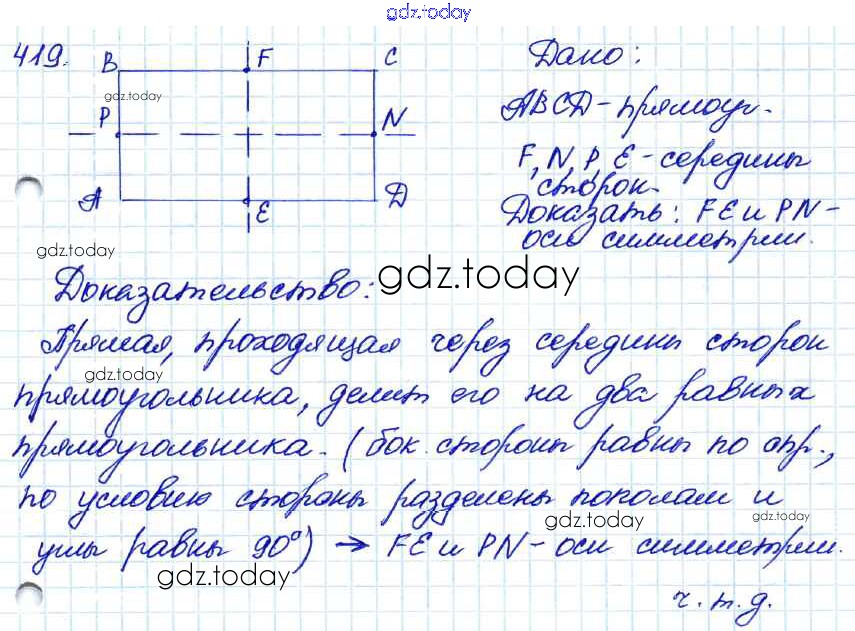 gdz.today
419.
B F C
gdz.today
P N
A E D
Дано:
ABCD - прямоуг.
F, N, P, E - середины
сторон.
Доказать: FE и PN -
оси симметрии.
gdz.today
Доказательство:
gdz.today
Прямая, проходящая через середины сторон
gdz.today
прямоугольника, делит его на два равных
прямоугольника. (бок. стороны равны по опр.,
по условию стороны разделены пополам и
gdz.today
gdz.today
углы равны 90°) → FE и PN - оси симметрии.
gdz.today
ч.т.д.